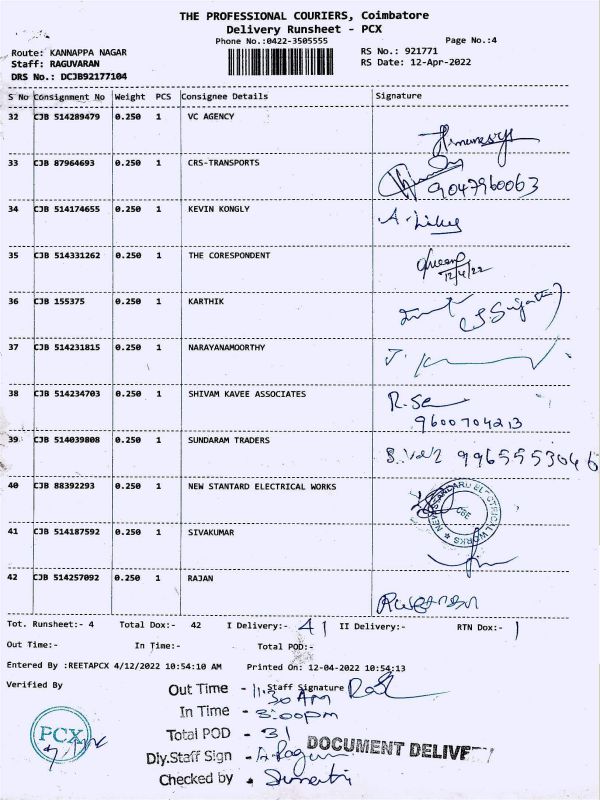 THE PROFESSIONAL COURIERS, Coimbatore
Delivery Runsheet - PCX
Phone No.:0422-3505555
Page No.:4
Route: KANNAPPA NAGAR
RS No.: 921771
Staff: RAGUVARAN
RS Date: 12-Apr-2022
DRS No.: DCJB92177104
S No Consignment No Weight PCS Consignee Details Signature
32 CJB 514289479 0.250 1 VC AGENCY
33 CJB 87964693 0.250 1 CRS-TRANSPORTS
9047960063
34 CJB 514174655 0.250 1 KEVIN KONGLY
35 CJB 514331262 0.250 1 THE CORESPONDENT
12/4/22
36 CJB 155375 0.250 1 KARTHIK
37 CJB 514231815 0.250 1 NARAYANAMOORTHY
38 CJB 514234703 0.250 1 SHIVAM KAVEE ASSOCIATES
9600704213
39 CJB 514039808 0.250 1 SUNDARAM TRADERS
9965553046
40 CJB 88392293 0.250 1 NEW STANTARD ELECTRICAL WORKS
NEW STANDARD ELECTRICAL WORKS
CBE
41 CJB 514187592 0.250 1 SIVAKUMAR
42 CJB 514257092 0.250 1 RAJAN
Tot. Runsheet:- 4 Total Dox:- 42 I Delivery:- 41 II Delivery:- RTN Dox:- 1
Out Time:- In Time:- Total POD:-
Entered By :REETAPCX 4/12/2022 10:54:10 AM Printed On: 12-04-2022 10:54:13
Verified By Staff Signature
Out Time - 11.30 AM
In Time - 3:00pm
Total POD - 31
PCX
DOCUMENT DELIVE
Dly.Staff Sign -
Checked by -